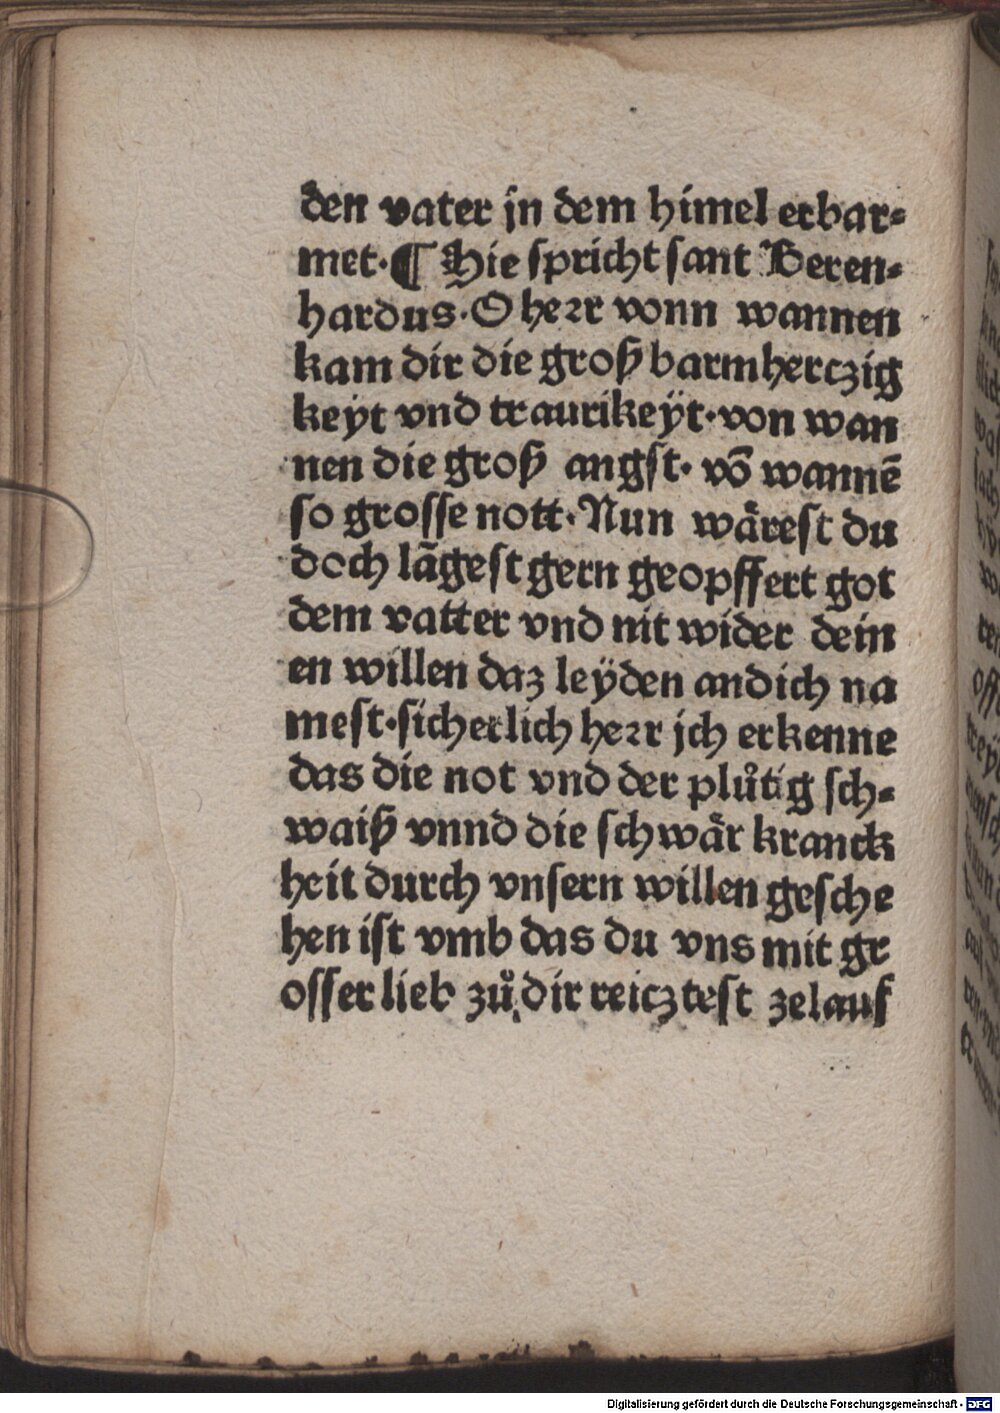 den vater jn dem himel erbar⸗
met·¶ Hie spricht sant Beren⸗
hardus·O heꝛr vonn wannen
kam dir die groß barmherczig
keÿt vnd traurikeÿt·von wan
nen die groß angst· võ wannẽ
so grosse nott·Nun wärest du
doch lãgest gern geopffert got
dem vatter vnd nit wider dein
en willen daz leÿden andich na
mest·sicherlich heꝛr jch erkenne
das die not vnd der plůtig sch⸗
waiß vnnd die schwär kranck
heit durch vnsern willen gesche
hen ist vmb das du vns mit gr
osser lieb zů dir reicztest zelauf
Digitalisierung gefördert durch die Deutsche Forschungsgemeinschaft - DFG